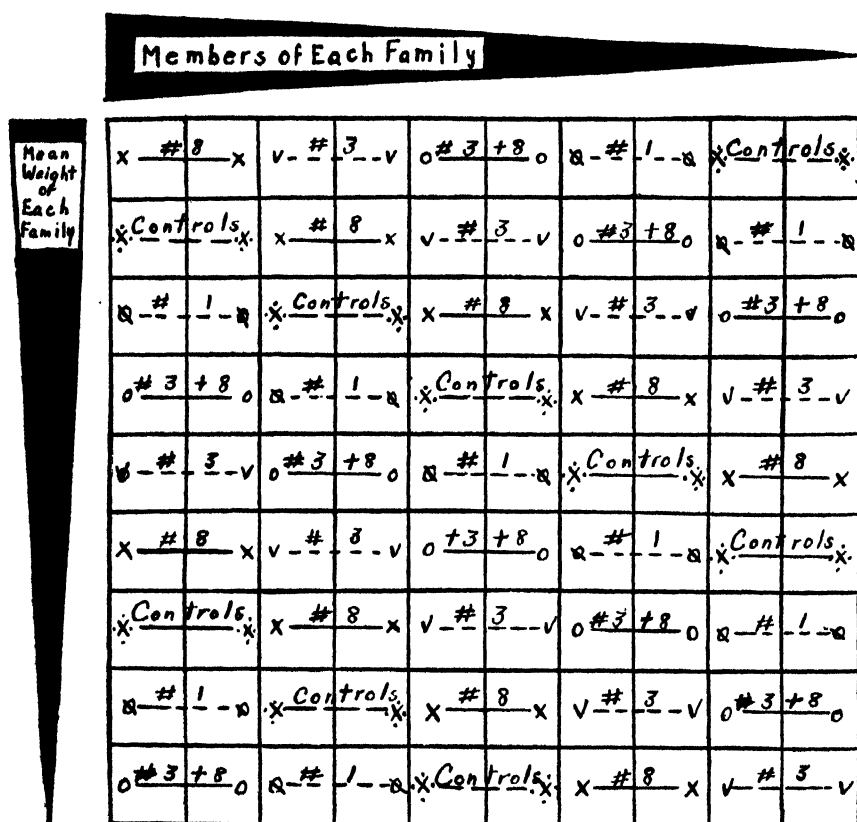 Members of Each Family
Mean
Weight
of
Each
Family
x # 8 x v # 3 v o # 3 + 8 o # 1 x Controls x
x Controls x x # 8 x v # 3 v o #3 + 8 o # 1
# 1 x Controls x x # 8 x v # 3 v o # 3 + 8 o
o # 3 + 8 o # 1 x Controls x x # 8 x v # 3 v
v # 3 v o # 3 + 8 o # 1 x Controls x x # 8 x
x # 8 x v # 3 v o +3 + 8 o # 1 x Controls x
x Controls x x # 8 x v # 3 v o #3 + 8 o # 1
# 1 x Controls x x # 8 x v # 3 v o # 3 + 8 o
o # 3 + 8 o # 1 x Controls x x # 8 x v # 3 v